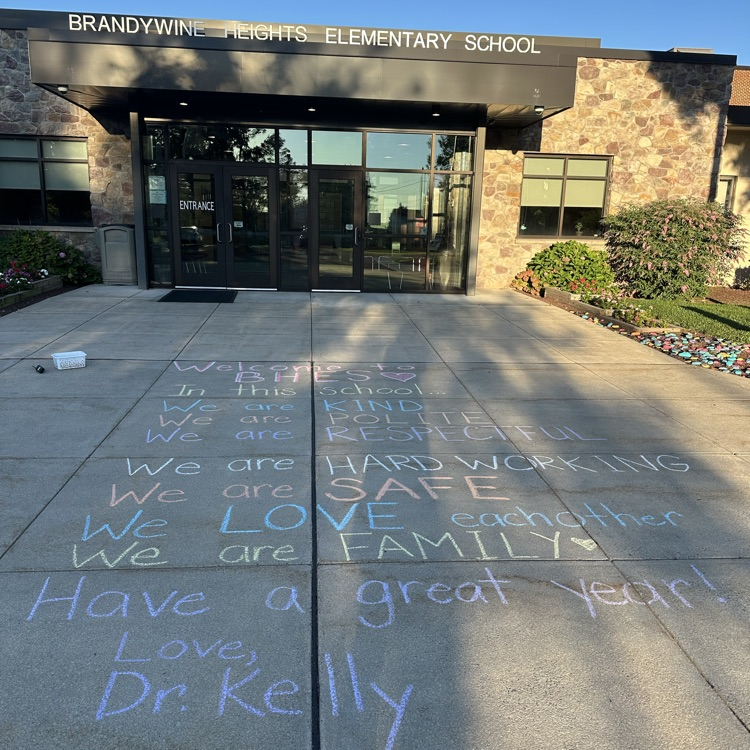 BRANDYWINE HEIGHTS ELEMENTARY SCHOOL
ENTRANCE
Welcome to
BHES
In this school...
We are KIND
We are POLITE
We are RESPECTFUL
We are HARD WORKING
We are SAFE
We LOVE eachother
We are FAMILY
Have a great year!
Love,
Dr. Kelly